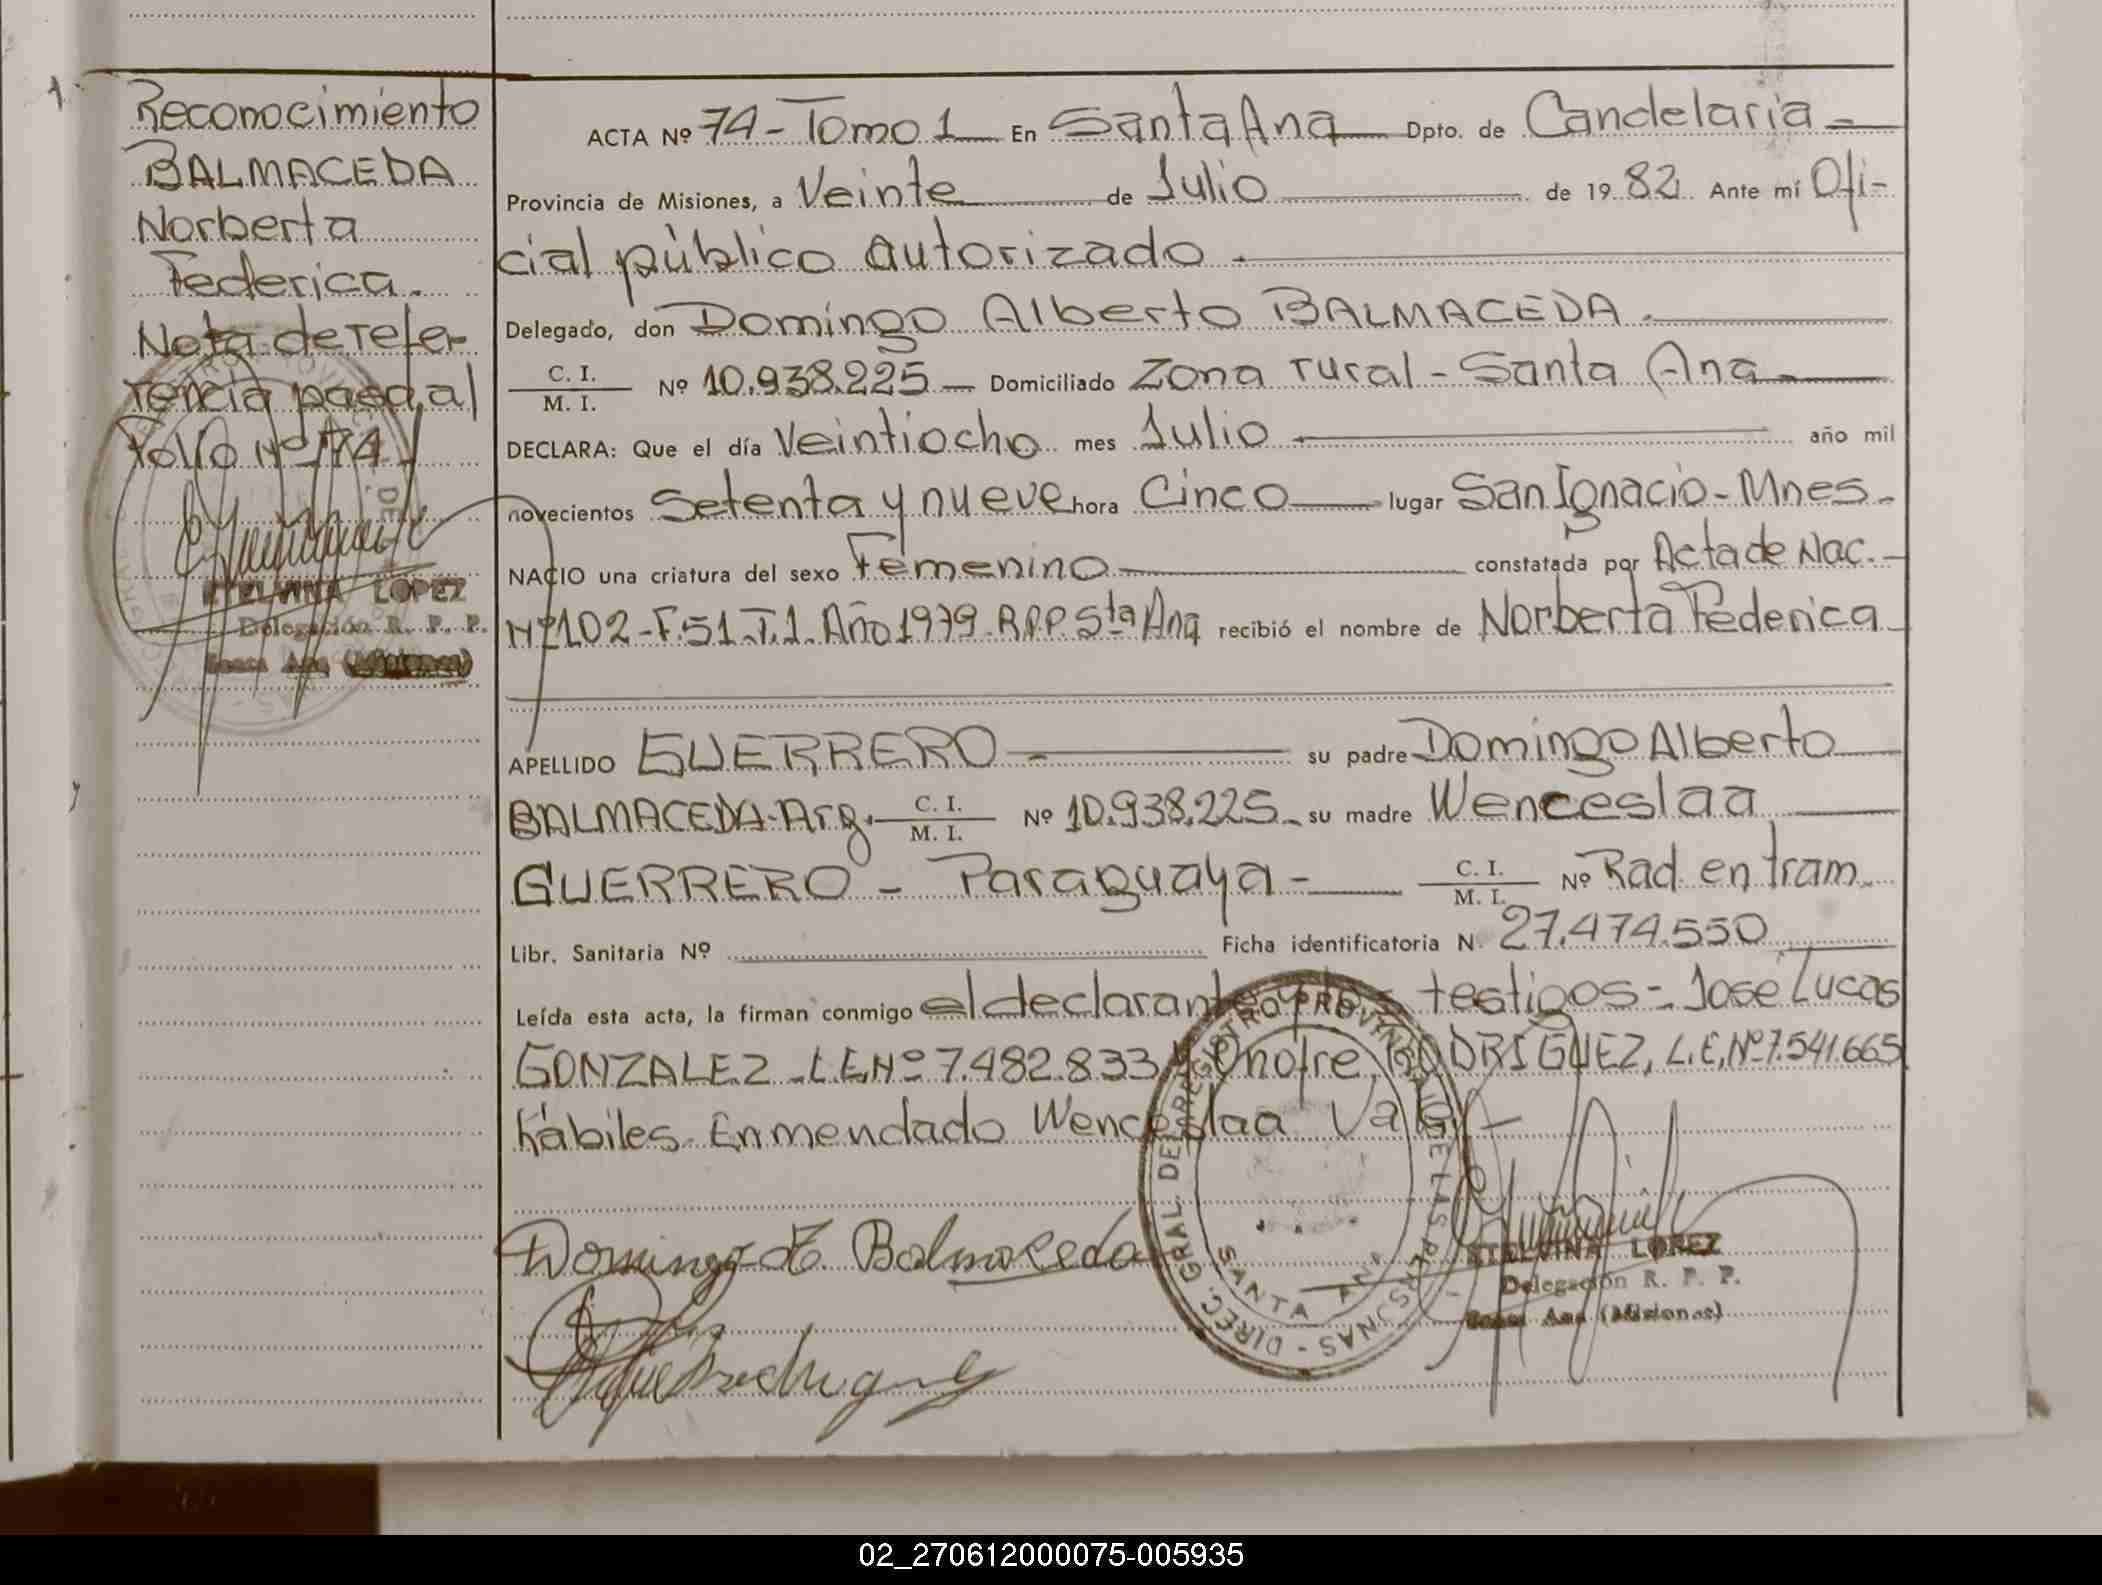 Reconocimiento
BALMACEDA
Norberta
Federica.
Nota de refe-
rencia pasa al
folio Nº 74
ETELVINA LOPEZ
Delegación R. P. P.
Santa Ana (Misiones)
ACTA Nº 74 - Tomo 1 En Santa Ana Dpto. de Candelaria -
Provincia de Misiones, a Veinte de Julio de 1982. Ante mí Ofi-
cial público autorizado.
Delegado, don Domingo Alberto BALMACEDA.
C. I. / M. I. Nº 10.938.225 - Domiciliado Zona rural - Santa Ana -
DECLARA: Que el día Veintiocho mes Julio año mil
novecientos Setenta y nueve hora Cinco lugar San Ignacio - Mnes -
NACIO una criatura del sexo Femenino constatada por Acta de Nac. -
Nº 102 - F. 51 - T. 1. Año 1979. R.P.P. Sta Ana recibió el nombre de Norberta Federica -
APELLIDO GUERRERO - su padre Domingo Alberto
BALMACEDA - Arg. C. I. / M. I. Nº 10.938.225 - su madre Wenceslaa
GUERRERO - Paraguaya - C. I. / M. I. Nº Rad. en tram.
Libr. Sanitaria Nº Ficha identificatoria N. 27.474.550
Leída esta acta, la firman conmigo el declarante y los testigos - Jose Lucas
GONZALEZ - L.E. Nº 7.482.833 y Onofre RODRIGUEZ, L.E. Nº 7.541.665
hábiles. Enmendado Wenceslaa Vale. -
Domingo A. Balmaceda
DIREC. GRAL. DEL REGISTRO PROVINCIAL DE LAS PERSONAS -
SANTA ANA
ETELVINA LOPEZ
Delegación R. P. P.
Santa Ana (Misiones)
02_270612000075-005935